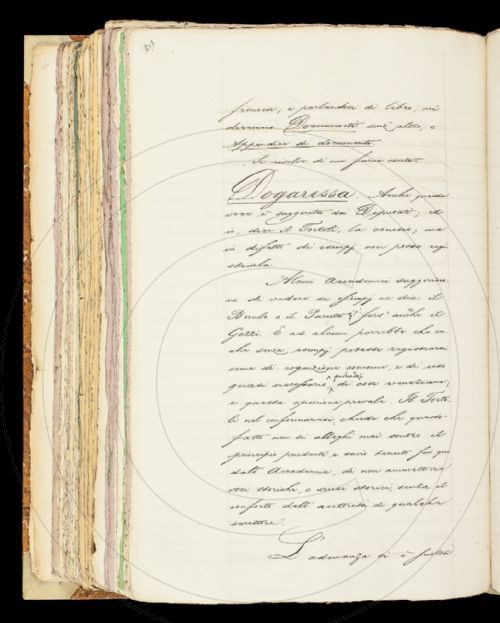 francese, e parlandosi di libro, noi
diremmo Documenti senz'altro, o
Appendice di documenti.
Si risolse di non farne conto.
Dogaressa. Anche questa
voce è suggerita dai Deputati, ed
io, dice il Tortoli, la cercai, ma
in difetto di esempj non posso regi
strarla.
Alcuni Accademici suggerisco
no di vedere se esempj ne dia il
Bembo e il Paruta e fors' anche il
Gozzi. E ad alcuni parrebbe che an
che senza esempj potesse registrarsi
come di cognizione comune, e di uso
quasi necessario parlandosi di cose veneziane;
e questa opinione prevale. Il Torto
li nel conformarvisi, chiede che questo
fatto non si alleghi mai contro il
principio prudente e savio tenuto fin qui
dall' Accademia, di non ammettere
voci storiche, o sensi storici, senza il
conforto dell' autorità di qualche
scrittore.
L'adunanza si è sciolta